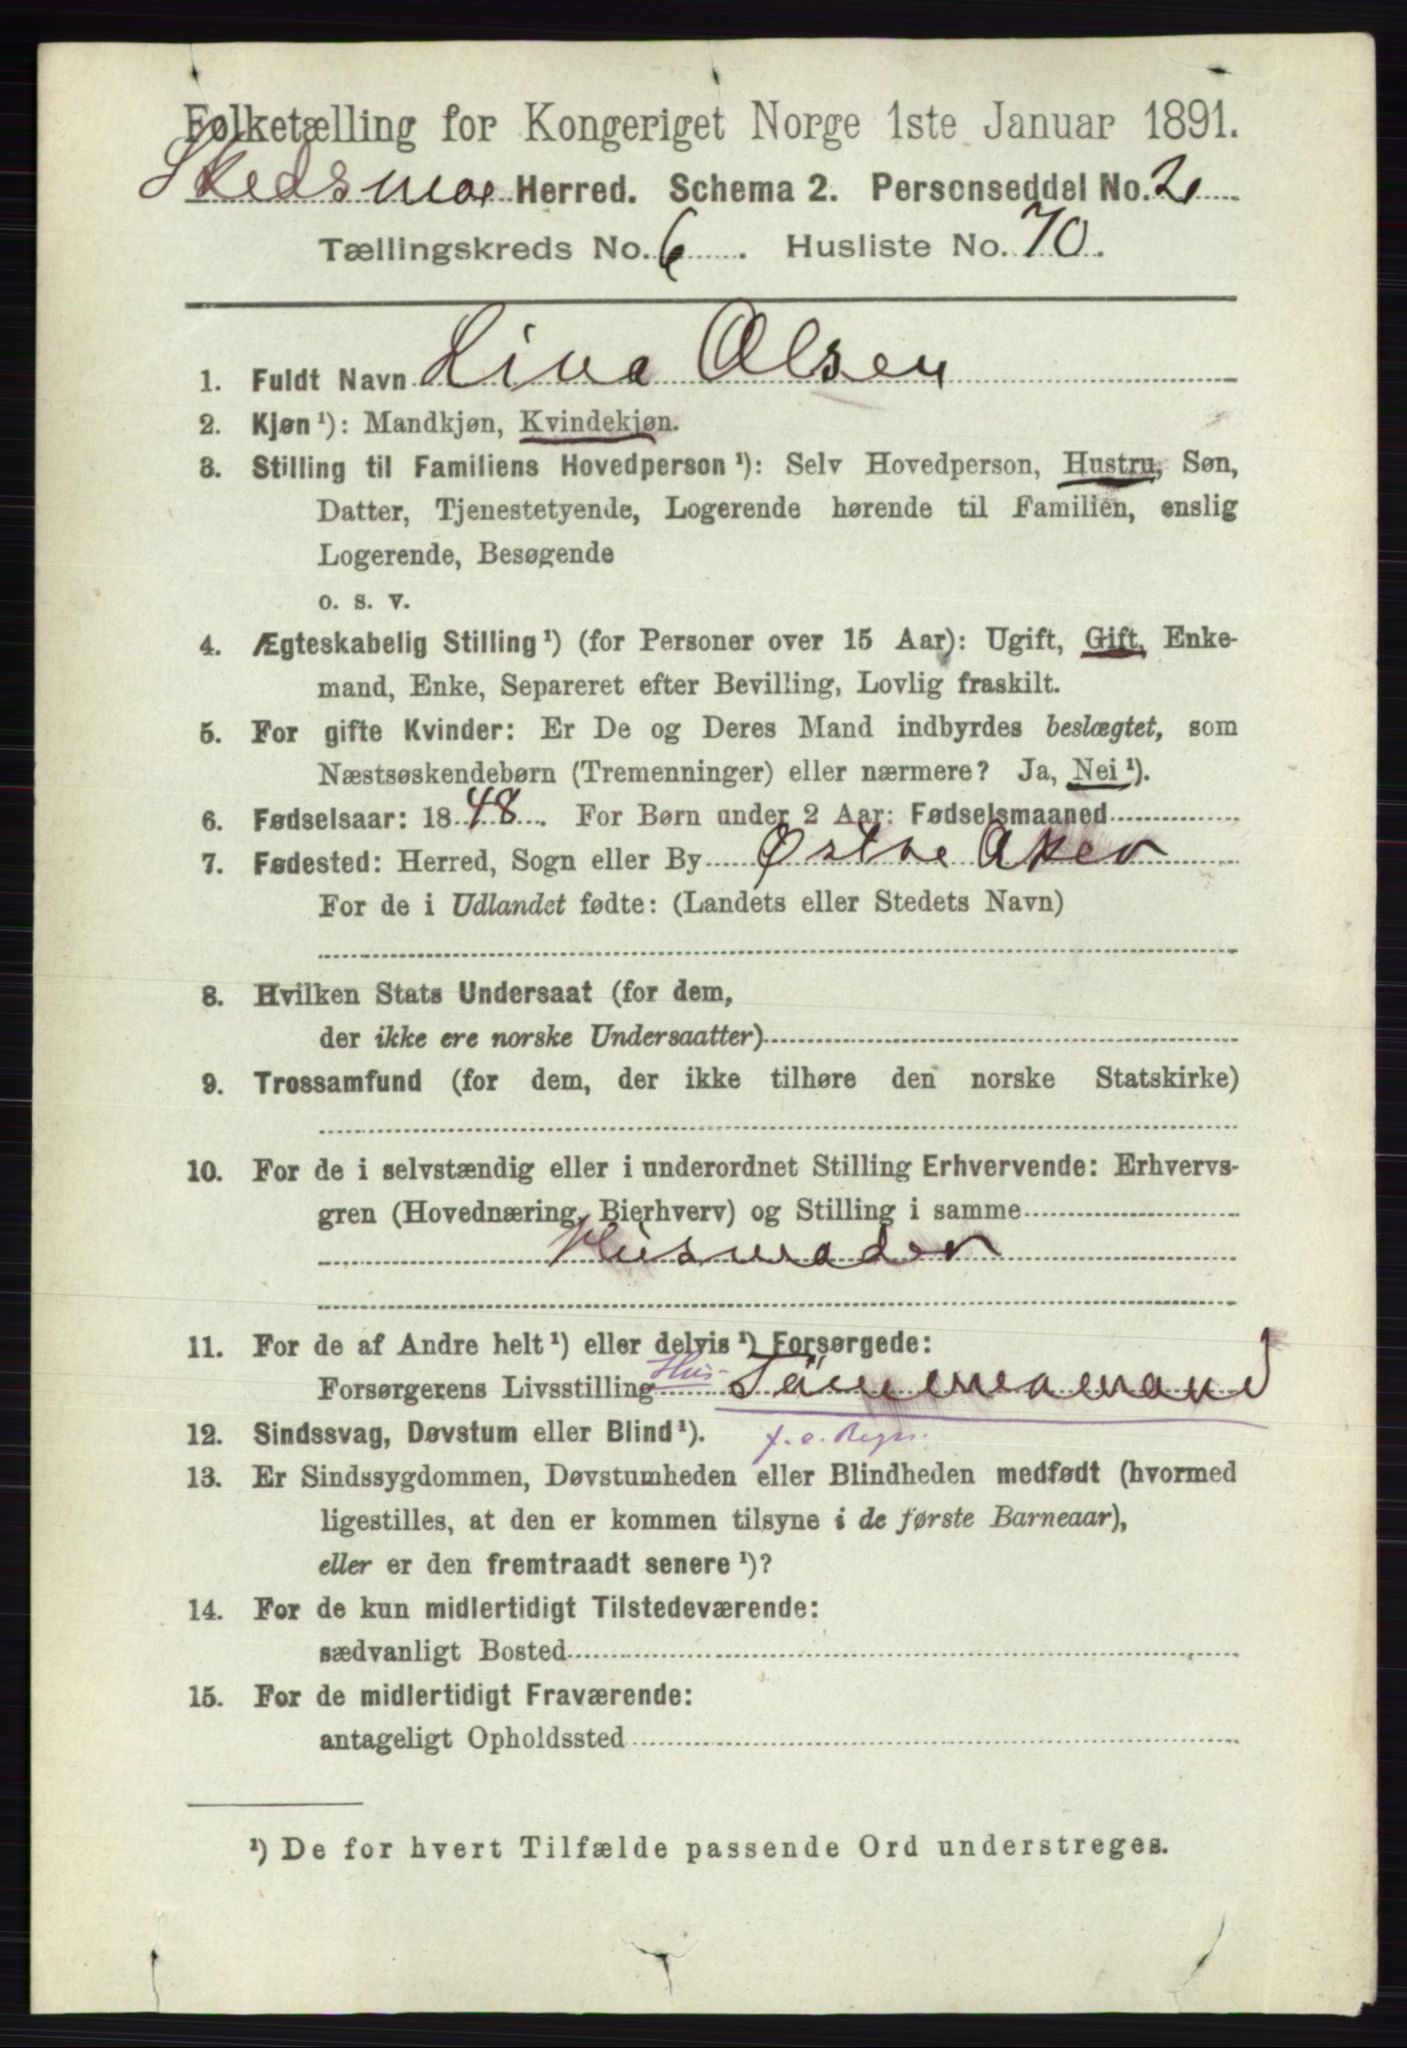 Folketælling for Kongeriget Norge 1ste Januar 1891.
Skedsmoe Herred. Schema 2. Personseddel No. 2
Tællingskreds No. 6. Husliste No. 70.
1. Fuldt Navn Lina Olsen
2. Kjøn¹): Mandkjøn, Kvindekjøn.
3. Stilling til Familiens Hovedperson¹): Selv Hovedperson, Hustru, Søn,
Datter, Tjenestetyende, Logerende hørende til Familien, enslig
Logerende, Besøgende
o. s. v.
4. Ægteskabelig Stilling¹) (for Personer over 15 Aar): Ugift, Gift, Enke-
mand, Enke, Separeret efter Bevilling, Lovlig fraskilt.
5. For gifte Kvinder: Er De og Deres Mand indbyrdes beslægtet, som
Næstsøskendebørn (Tremenninger) eller nærmere? Ja, Nei¹).
6. Fødselsaar: 1848. For Børn under 2 Aar: Fødselsmaaned
7. Fødested: Herred, Sogn eller By Østre Aker
For de i Udlandet fødte: (Landets eller Stedets Navn)
8. Hvilken Stats Undersaat (for dem,
der ikke ere norske Undersaatter)
9. Trossamfund (for dem, der ikke tilhøre den norske Statskirke)
10. For de i selvstændig eller i underordnet Stilling Erhvervende: Erhvervs-
gren (Hovednæring, Bierhverv) og Stilling i samme
Husmoder
11. For de af Andre helt¹) eller delvis¹) Forsørgede:
Forsørgerens Livsstilling Hus-
12. Sindssvag, Døvstum eller Blind¹).
13. Er Sindssygdommen, Døvstumheden eller Blindheden medfødt (hvormed
ligestilles, at den er kommen tilsyne i de første Barneaar),
eller er den fremtraadt senere¹)?
14. For de kun midlertidigt Tilstedeværende:
sædvanligt Bosted
15. For de midlertidigt Fraværende:
antageligt Opholdssted
¹) De for hvert Tilfælde passende Ord understreges.